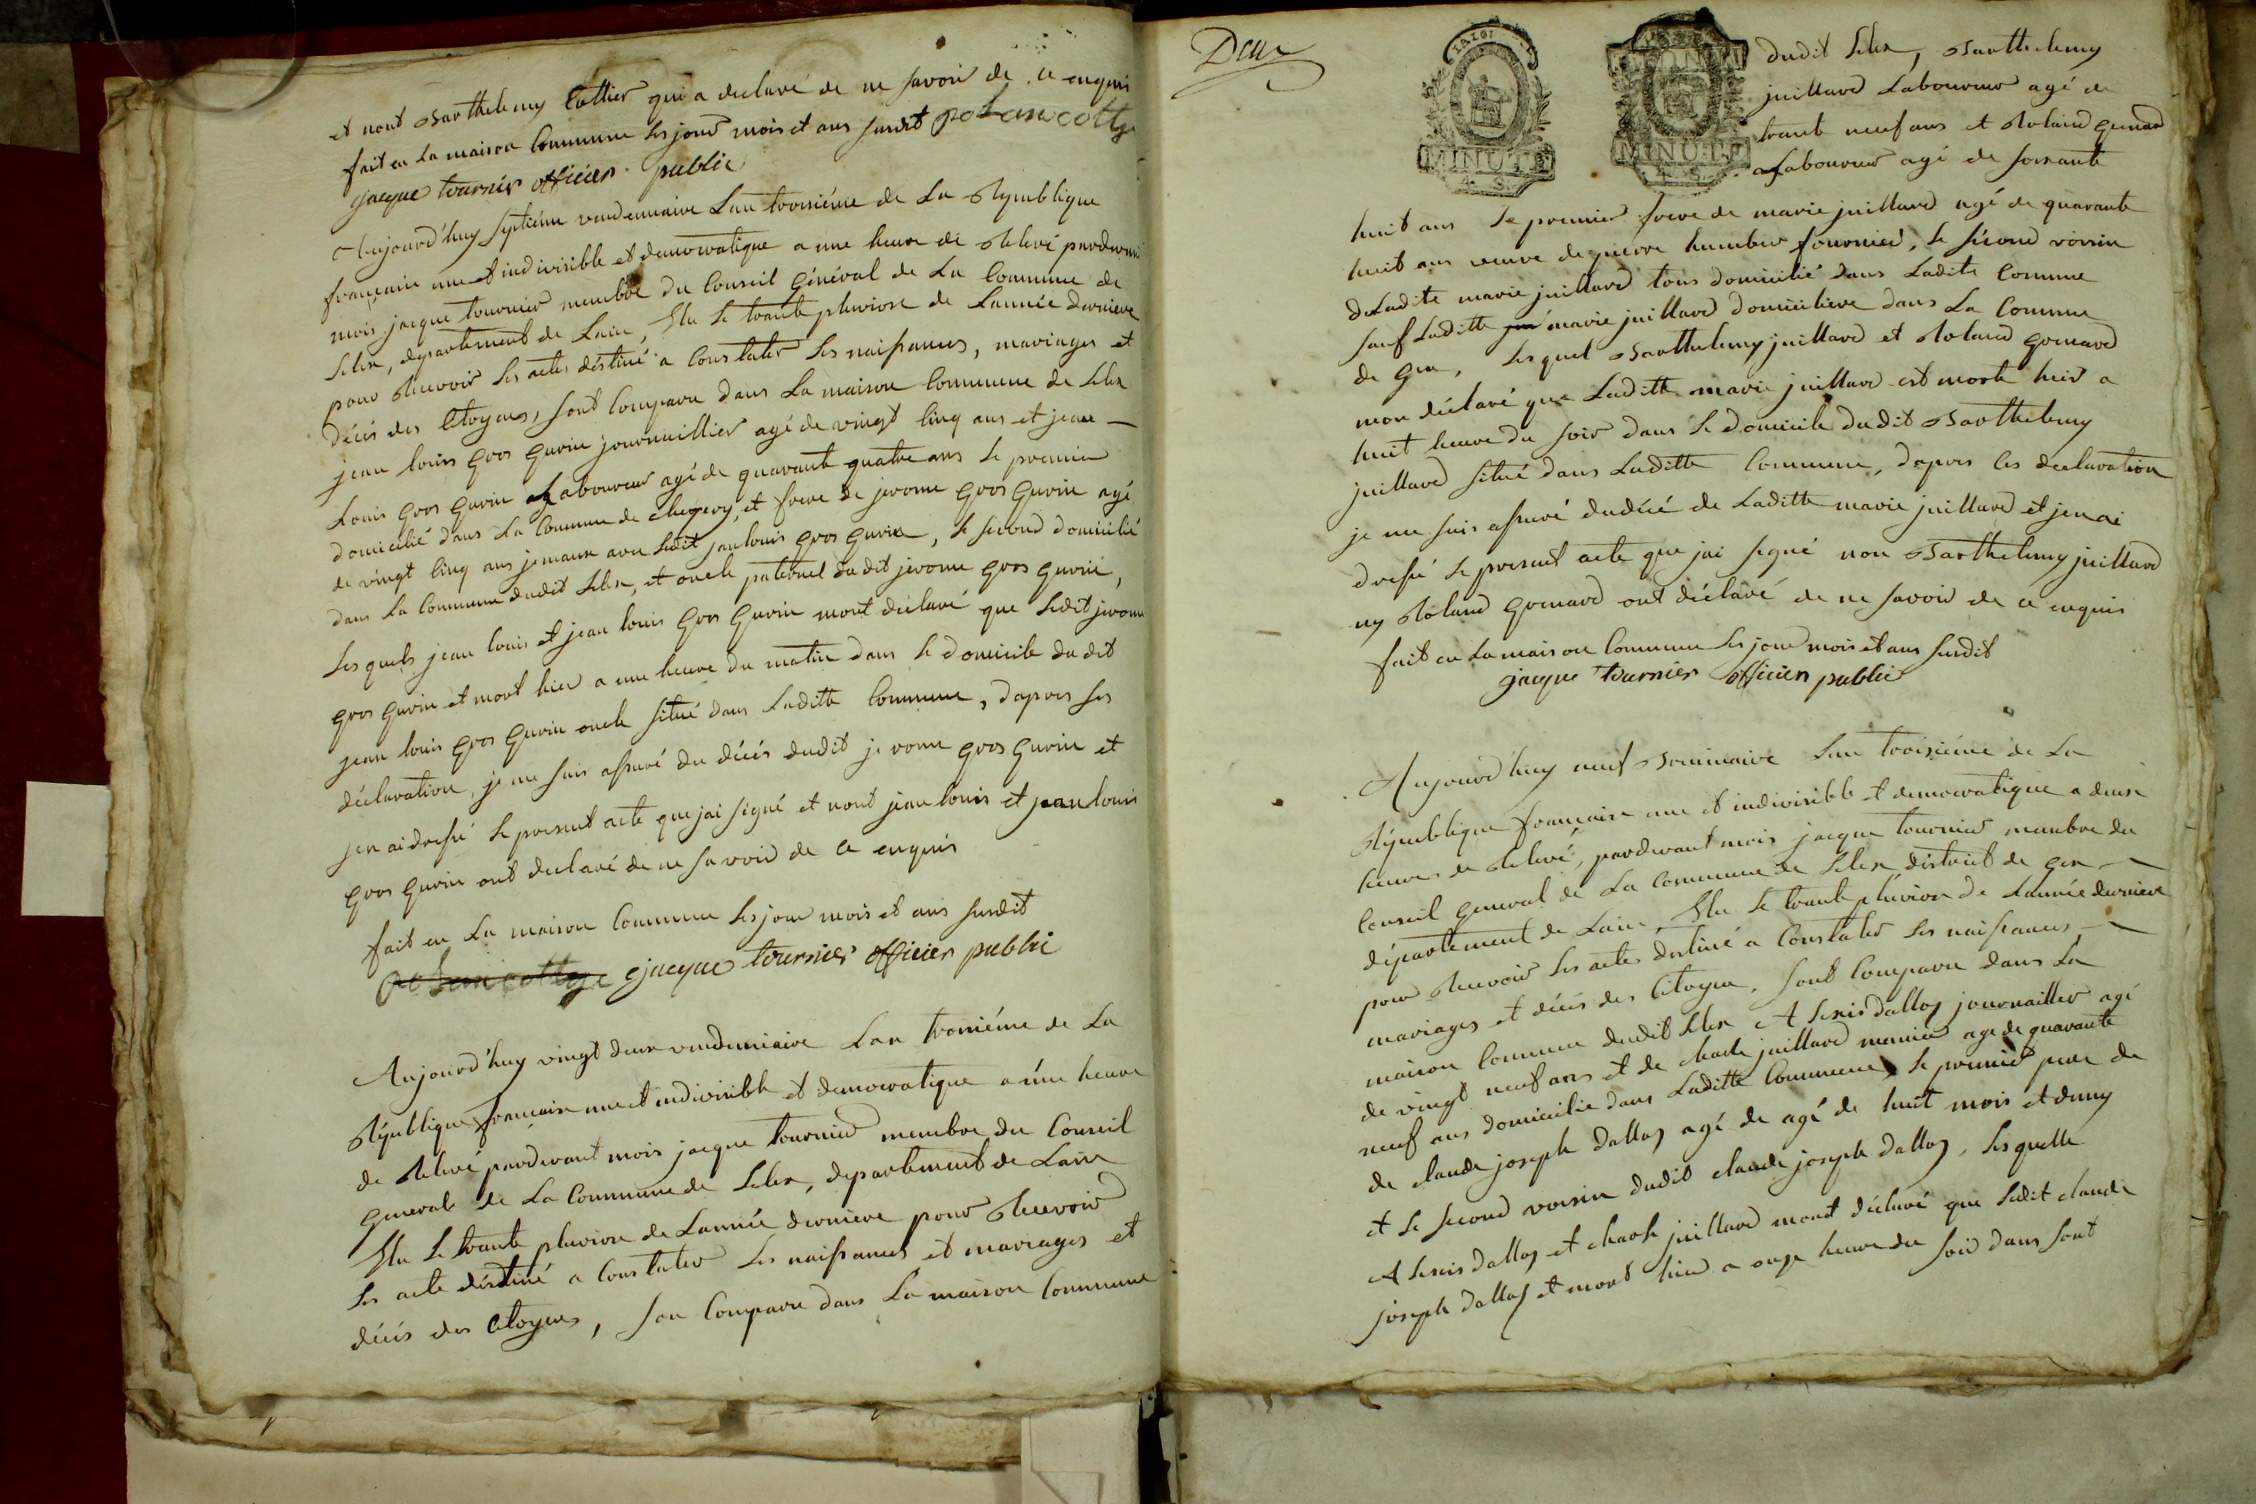 et nont Barthelemy Cottier qui a declaré de ne savoir de ce enquis
fait en La maison Commune Les jour mois et ans susdit
jacque tournier officier public
Aujourd'huy septiéme vendemiaire Lan troisiéme de La République
françaice une et indivisible et democratique a une heure de Relevé pardevant
mois jacque tournier membre du Conseil Général de La Commune de
Lelex, departement de Lain, Elu Le trante pluviose de Lannée derniere
pour Recevoir Les actes déstiné a Constater Les naissances, mariages et
décés des Citoyens, sont Comparu dans La maison Commune de Lelex
jean louis gros gurin journaillier agé de vingt cinq ans et jean
Louis gros gurin Laboureur agé de quarante quatre ans Le premier
domicilié dans La Commune de chezery, et frere de jerome gros gurin agé
de vingt cinq ans jemaux avec Ledit jean louis gros gurin, Le second domicilié
dans La Commune dudit Lelex, et oncle paternel dudit jerome gros gurin,
Les quels jean louis et jean louis gros gurin mont déclaré que Ledit jerome
gros gurin et mort hier a une heure du matin dans Le domicile dudit
jean louis gros gurin oncle situé dans Laditte Commune, dapres Les
déclaration, je me suis assuré du décés dudit jerome gros gurin et
jen ai dressé Le present acte que jai signé et nont jean louis et jean louis
gros gurin ont declaré de ne savoir de ce enquis
fait en La maison Commune Les jour mois et ans susdit
jacque tournier officier public
Aujourd'huy vingt deux vendemiaire Lan troisiéme de La
République françaice une et indivisible et democratique a une heure
de Relevé pardevant mois jacque tournier membre du Conseil
general de La Commune de Lelex, departement de Lain
Elu Le trante pluviose de Lannée derniere pour Recevoir
Les acte déstiné a Constater Les naissances et mariages et
décés des Citoyens, son Comparu dans La maison Commune
Deux
MINUTE
4. S.
MINUTE
4. S.
dudit Lelex, Barthelemy
juillard Laboureur agé de
trante neuf ans et Roland gonard
Laboureur agé de soixante
huit ans Le premier frere de marie juillard agé de quarante
huit ans veuve de pierre humber fournier, Le sécond voisin
de Ladite marie juillard tous domicilié dans Ladite Commune
sauf Laditte marie juillard domiciliere dans La Commune
de gex, Les quel Barthelemy juillard et Roland gonard
mon déclaré que Laditte marie juillard est morte hier a
huit heure du soir dans Le domicile dudit Barthelemy
juillard situé dans Laditte Commune, dapres les declaration
je me suis assuré du décé de Laditte marie juillard et jen ai
dressé Le present acte que jai signé non Barthelemy juillard
ny Roland gonard ont déclaré de ne savoir de ce enquis
fait en La maison Commune Les jour mois et ans susdit
jacque tournier officier public
Aujourd'huy neuf Brumaire Lan troisiéme de La
République françaice une et indivisible et democratique a deux
heures de Relevé, pardevant mois jacque tournier membre du
Conseil general de La Commune de Lelex district de gex
département de Lain, Elu Le trante pluviose de Lannée derniere
pour Recevoir Les actes destiné a Constater Les naissances
mariages et décés des Citoyens, sont Comparu dans La
maison Commune dudit Lelex Alexis dalloz journaillier agé
de vingt neuf ans et de charle juillard munier age de quarante
neuf ans domicilie dans Laditte Commune, Le premier pere de
de claude joseph dalloz agé de agé de huit mois et demy
et Le second voisin dudit claude joseph dalloz, Lesquelle
Alexis dalloz et charle juillard mont déclaré que Ledit claude
joseph dalloz et mort hier a onze heure du soir dans sont